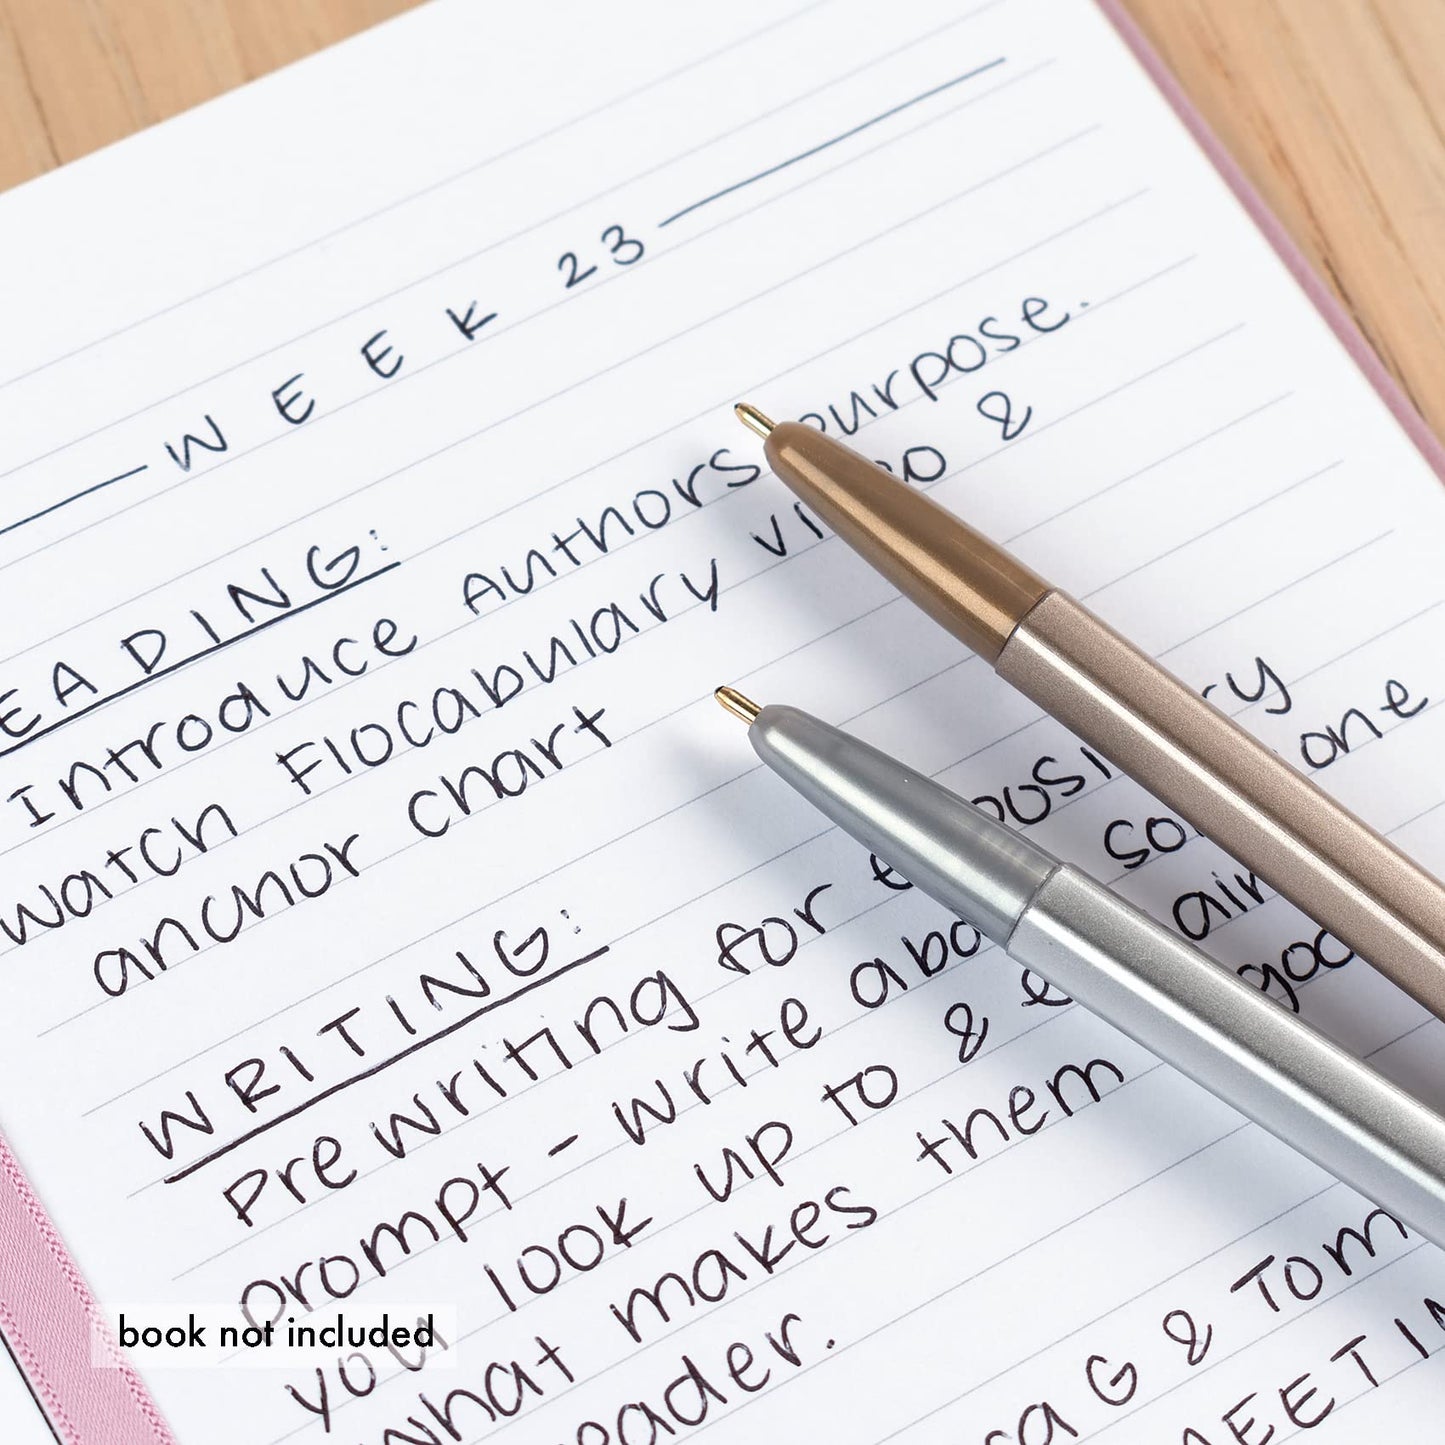 WEEK 23
EADING:
Introduce Authors purpose.
watch Flocabulary video &
anchor chart
WRITING:
Prewriting for expository
prompt - write about someone
you look up to & good
what makes them
eader.
a G & Tom
MEETIN
book not included